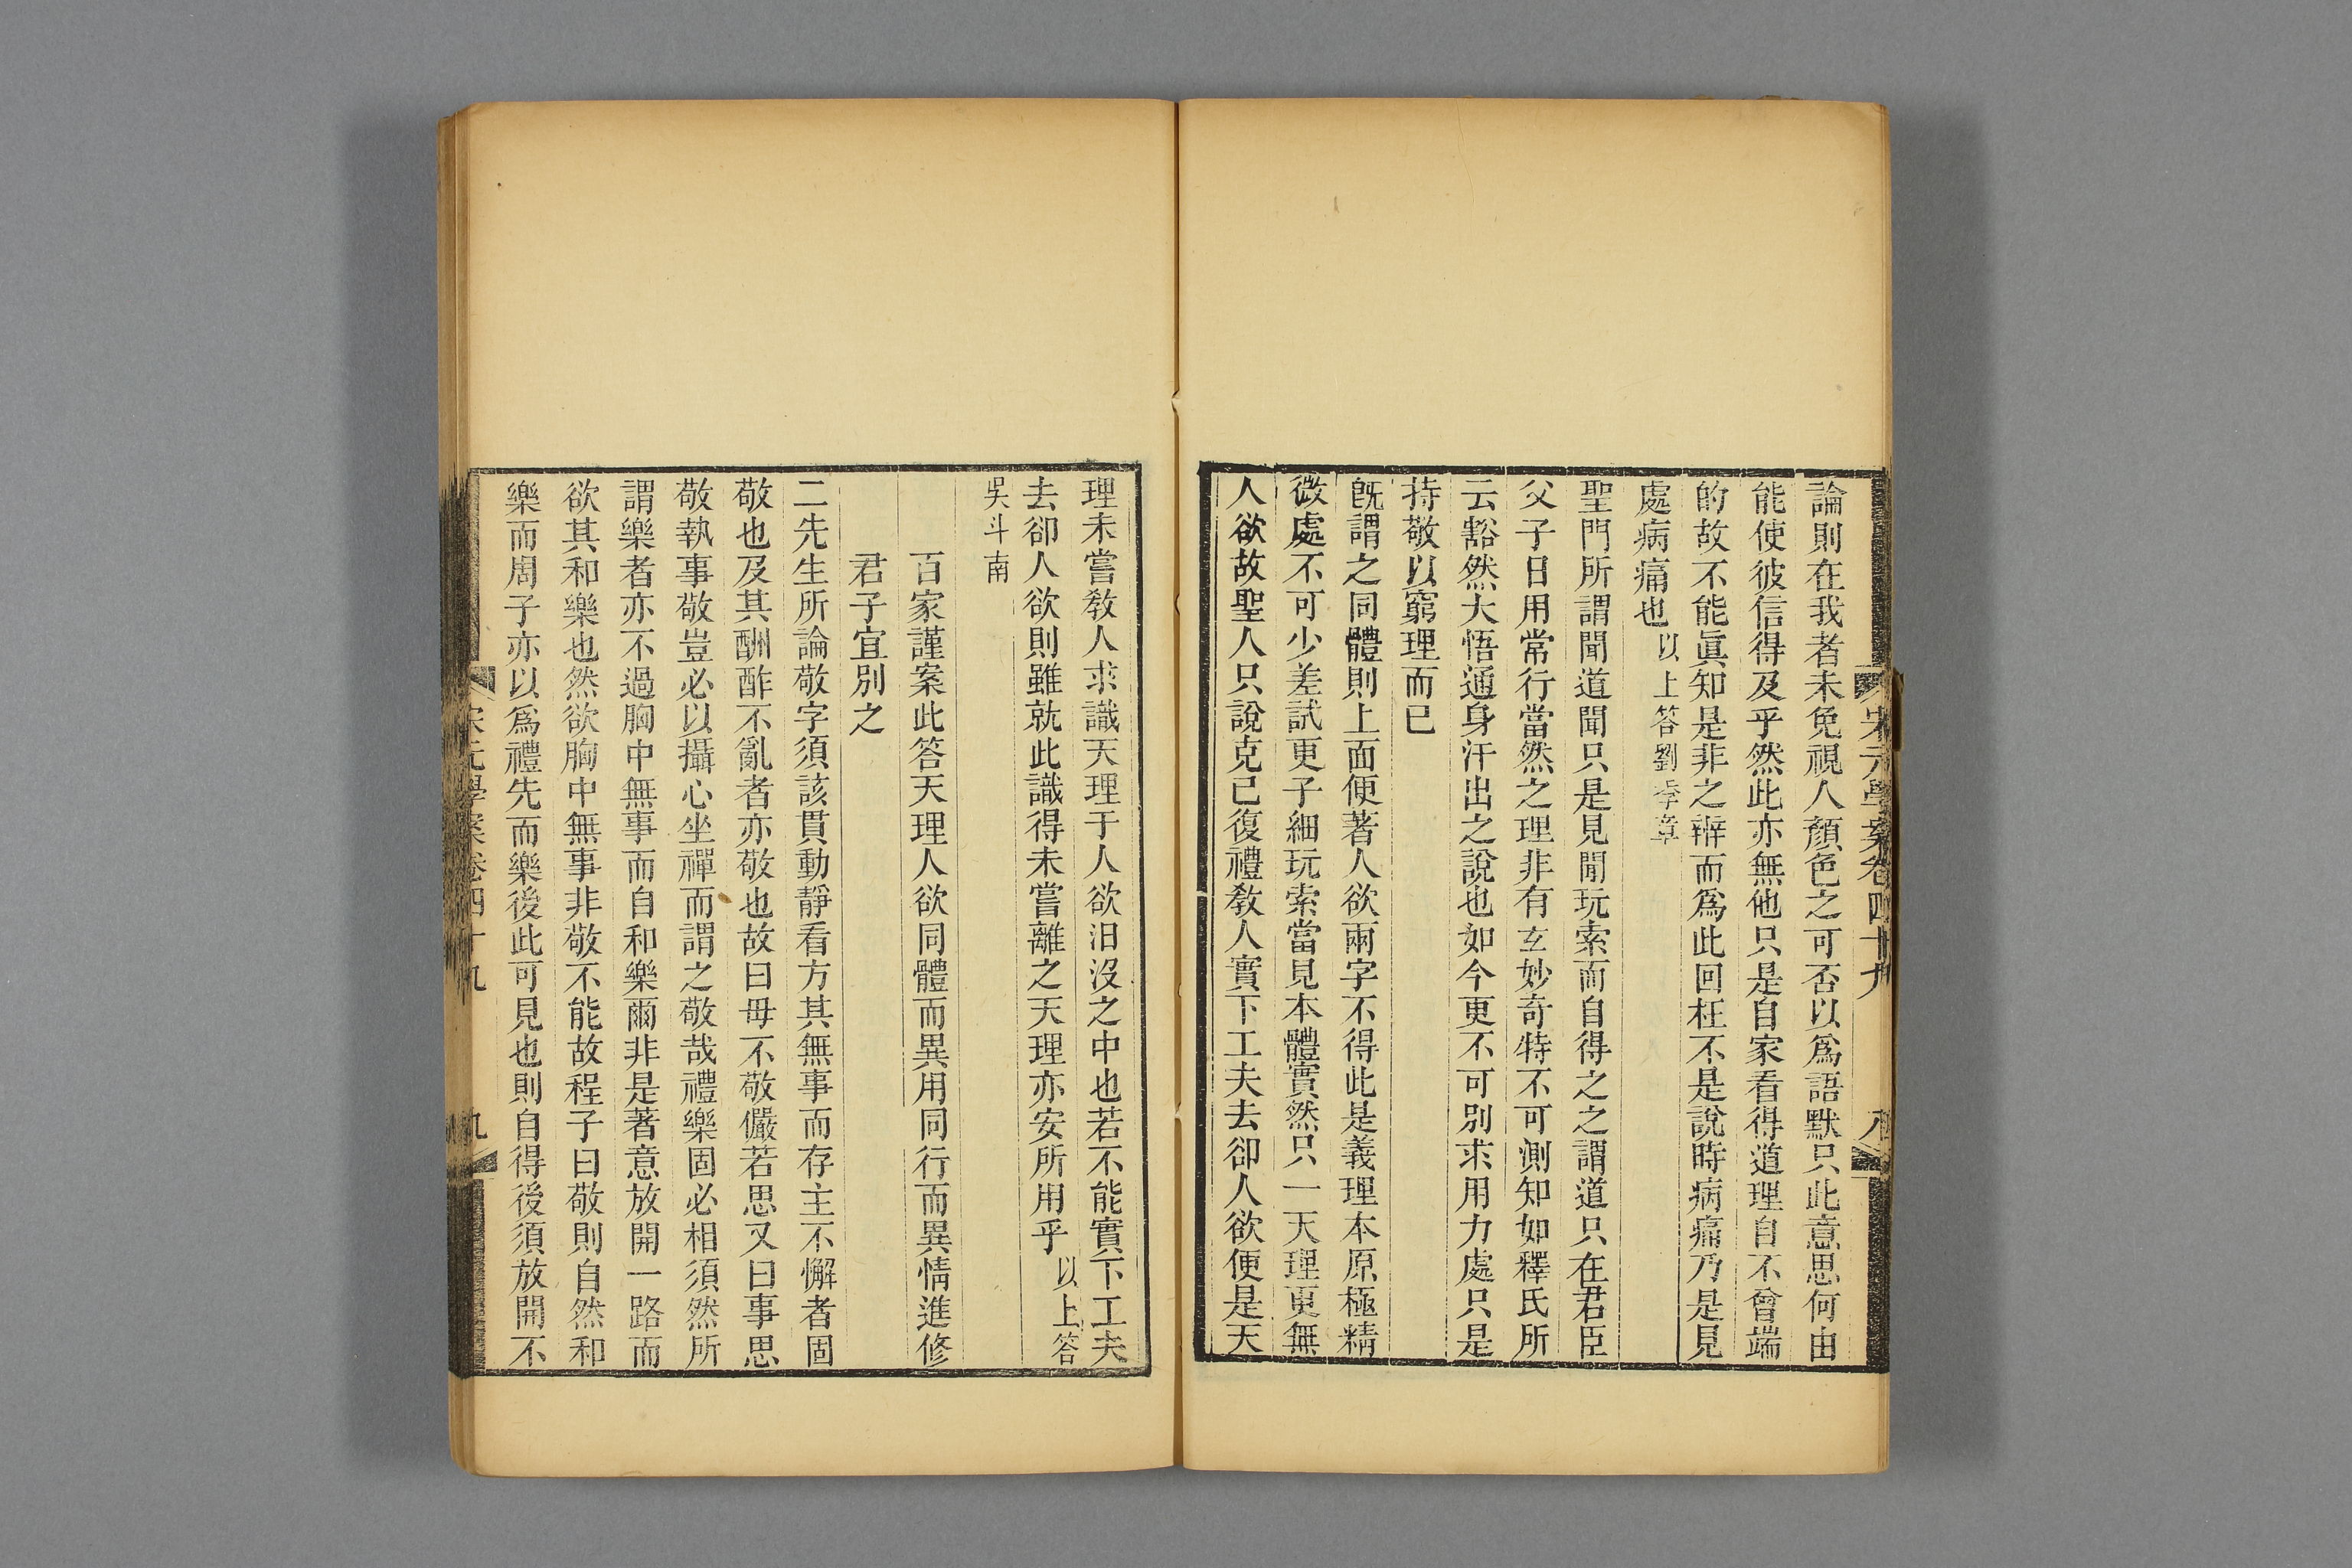 宋元學案卷四十九 八
論則在我者未免視人顏色之可否以爲語默只此意思何由
能使彼信得及乎然此亦無他只是自家看得道理自不曾端
的故不能眞知是非之辨而爲此回枉不是說時病痛乃是見
處病痛也以上答劉季章
聖門所謂聞道聞只是見聞玩索而自得之之謂道只在君臣
父子日用常行當然之理非有玄妙奇特不可測知如釋氏所
云豁然大悟通身汗出之說也如今更不可別求用力處只是
持敬以窮理而已
旣謂之同體則上面便著人欲兩字不得此是義理本原極精
微處不可少差試更子細玩索當見本體實然只一天理更無
人欲故聖人只說克已復禮敎人實下工夫去卻人欲便是天
理未嘗敎人求識天理于人欲汨沒之中也若不能實下工夫
去卻人欲則雖就此識得未嘗離之天理亦安所用乎以上答
吳斗南
百家謹案此答天理人欲同體而異用同行而異情進修
君子宜別之
二先生所論敬字須該貫動靜看方其無事而存主不懈者固
敬也及其酬酢不亂者亦敬也故曰毋不敬儼若思又曰事思
敬執事敬豈必以攝心坐禪而謂之敬哉禮樂固必相須然所
謂樂者亦不過胸中無事而自和樂爾非是著意放開一路而
欲其和樂也然欲胸中無事非敬不能故程子曰敬則自然和
樂而周子亦以爲禮先而樂後此可見也則自得後須放開不
宋元學案卷四十九 九